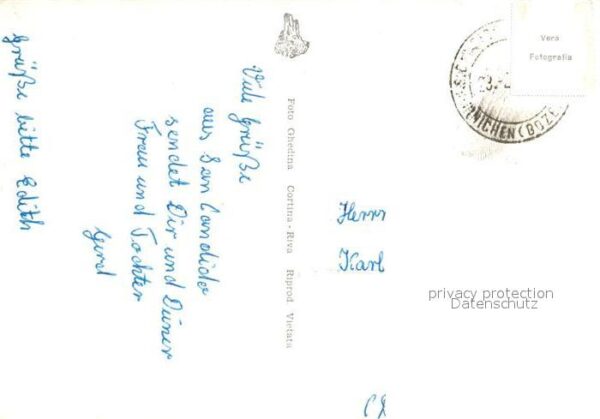 Viele Grüße
aus San Candido
sendet Dir und Deiner
Frau und Tochter
Gerd
Grüße bitte Edith
Foto Ghedina Cortina-Riva Riprod. Vietata
Vera
Fotografia
NICHEN (BOZE
Herrn
Karl
privacy protection
Datenschutz